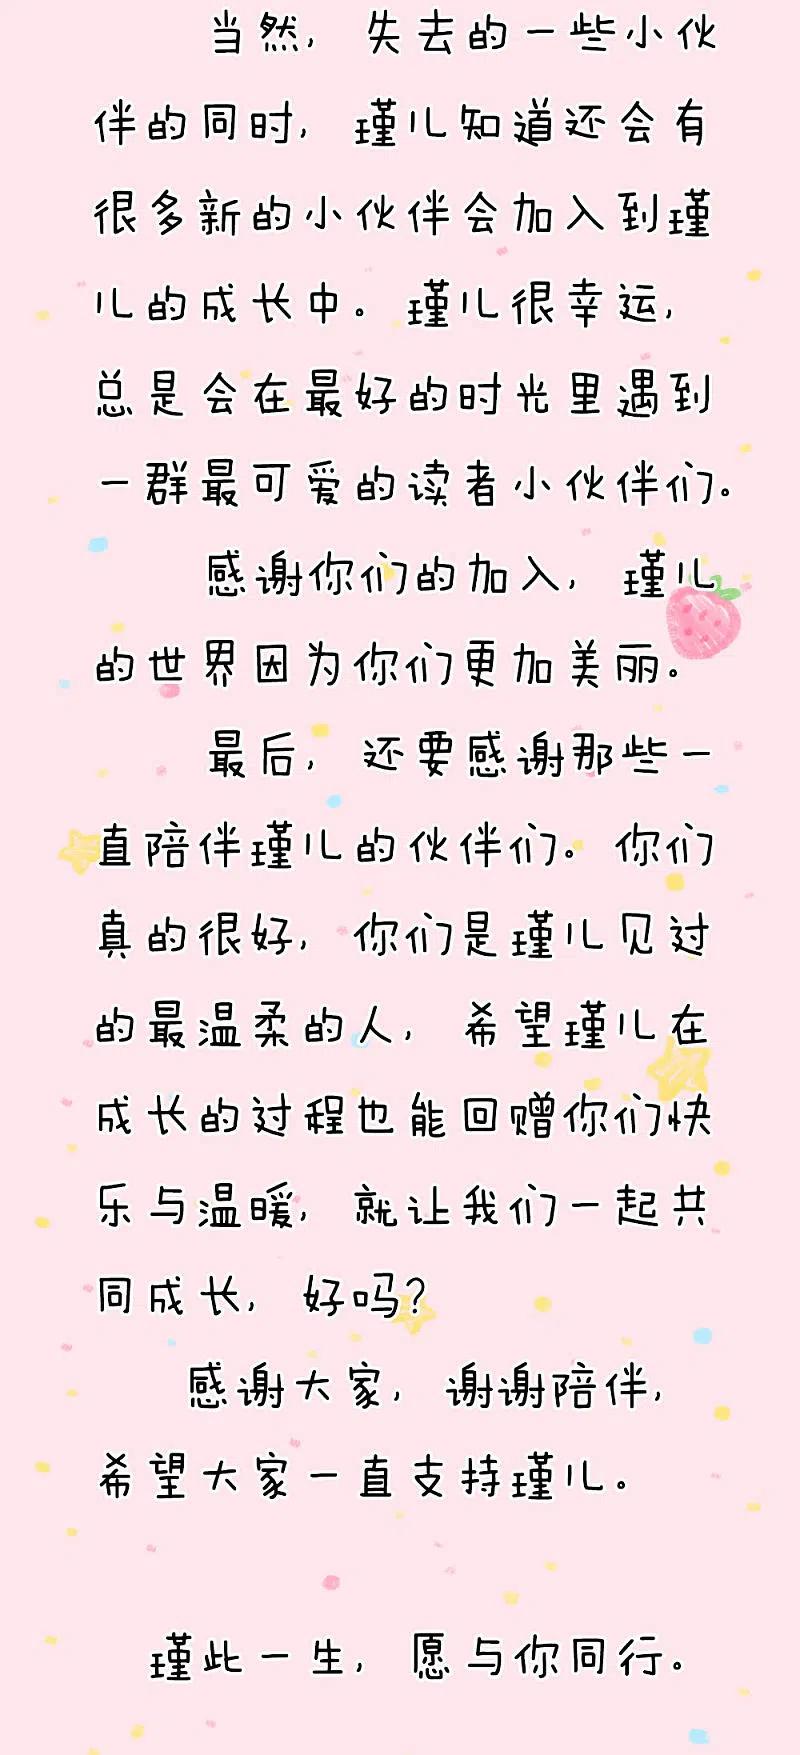 当然，失去的一些小伙
伴的同时，瑾儿知道还会有
很多新的小伙伴会加入到瑾
儿的成长中。瑾儿很幸运，
总是会在最好的时光里遇到
一群最可爱的读者小伙伴们。
感谢你们的加入，瑾儿
的世界因为你们更加美丽。
最后，还要感谢那些一
直陪伴瑾儿的伙伴们。你们
真的很好，你们是瑾儿见过
的最温柔的人，希望瑾儿在
成长的过程也能回赠你们快
乐与温暖，就让我们一起共
同成长，好吗？
感谢大家，谢谢陪伴，
希望大家一直支持瑾儿。
瑾此一生，愿与你同行。